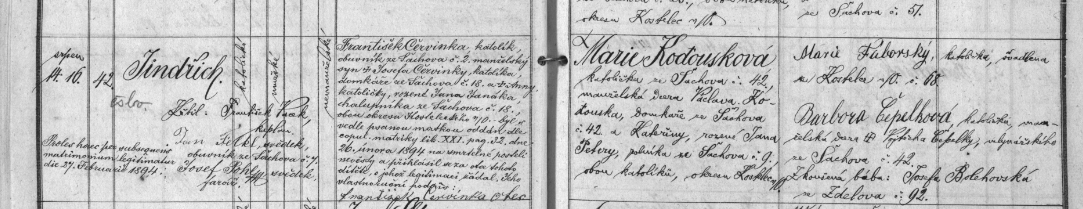 okres Kostelec n/O.
ze Suchova č. 57.
srpen
14. 16.
42
Jindřich.
katolické
mužské
nemanželské
Křtil: František
kaplan.
Jan svědek,
obuvník ze Suchova č. 7.
Josef svědek,
Proles haec per subsequens
matrimonium legitimatur
die 27. Februarii 1894.
František Červinka, katolík,
obuvník ze Suchova č. 2, manželský
syn † Josefa Červinky, katolíka,
domkáře ze Suchova č. 18. a † Anny,
katoličky, rozené Jana
chalupníka ze Suchova č. 18,
obou okresu Kosteleckého n/O. byl
vedle psanou matkou oddán dle
copul. matriky lib. XXI. pag. 52. dne
26. února 1894 na smrtelné posteli
a přihlásil se za otce tohoto
dítěte, o jehož legitimaci žádal. Jeho
vlastnoruční podpis:
František Červinka otec
Marie Kodousková
katolička ze Suchova č. 42,
manželská dcera Václava Ko-
douska, domkáře ze Suchova
č. 42 a Kateřiny, rozené Jana
ze Suchova č. 9,
obou katolíků, okresu Kostelec n/O.
Marie katolička,
z Kostelce n/O. č. 68.
Barbora Čepelková, katolička, man-
želská dcera † Vojtěcha Čepelky,
ze Suchova č. 42.
Zkoušená bába: Josefa Bolehovská
ze Zdelova č. 92.